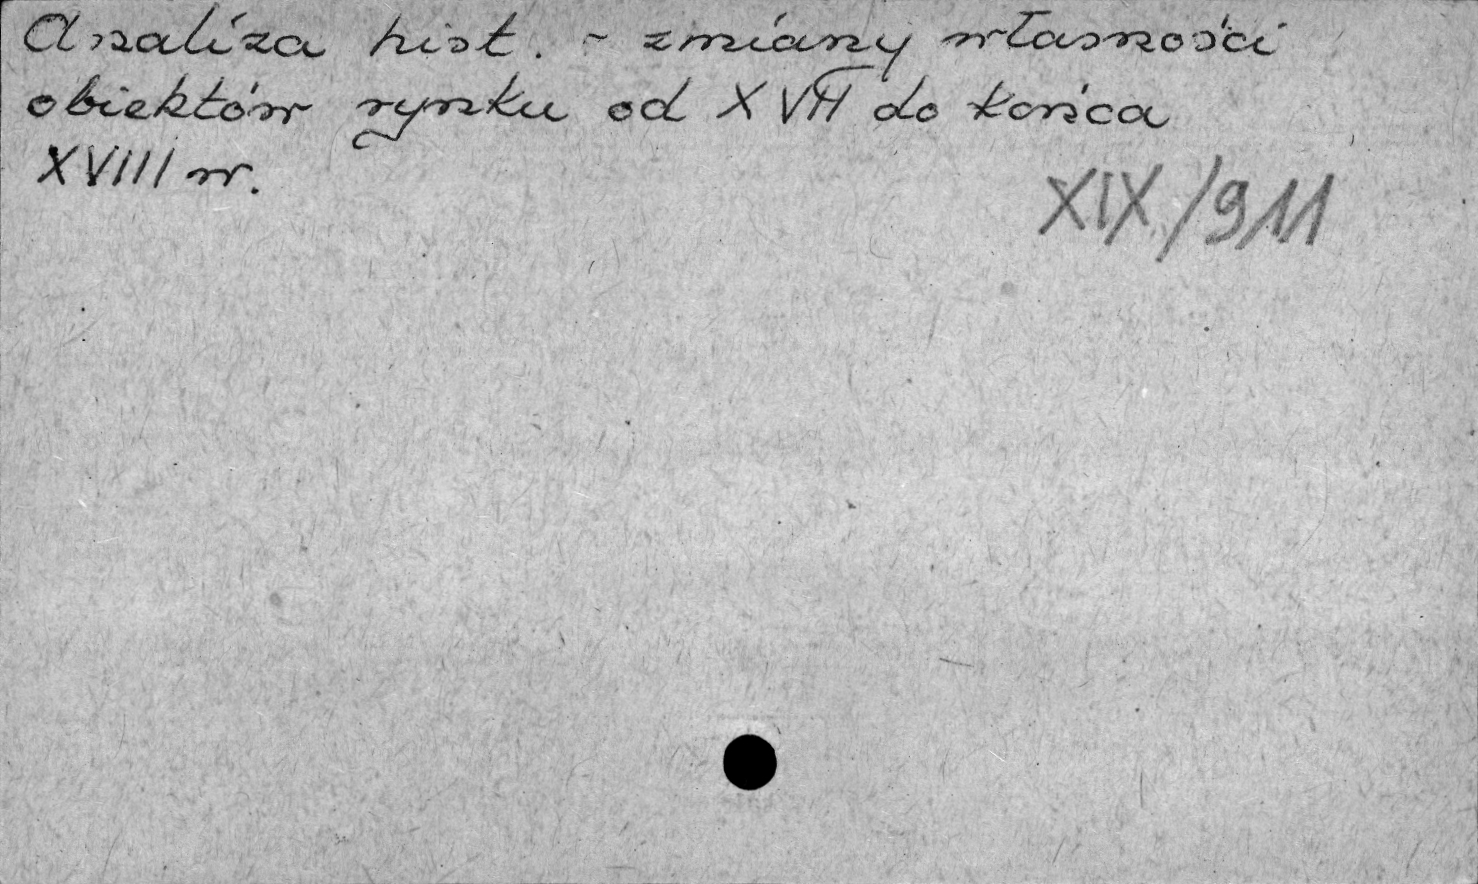 Analiza hist. - zmiany własności
obiektów rynku od XVII do końca
XVIII w.
XIX/911